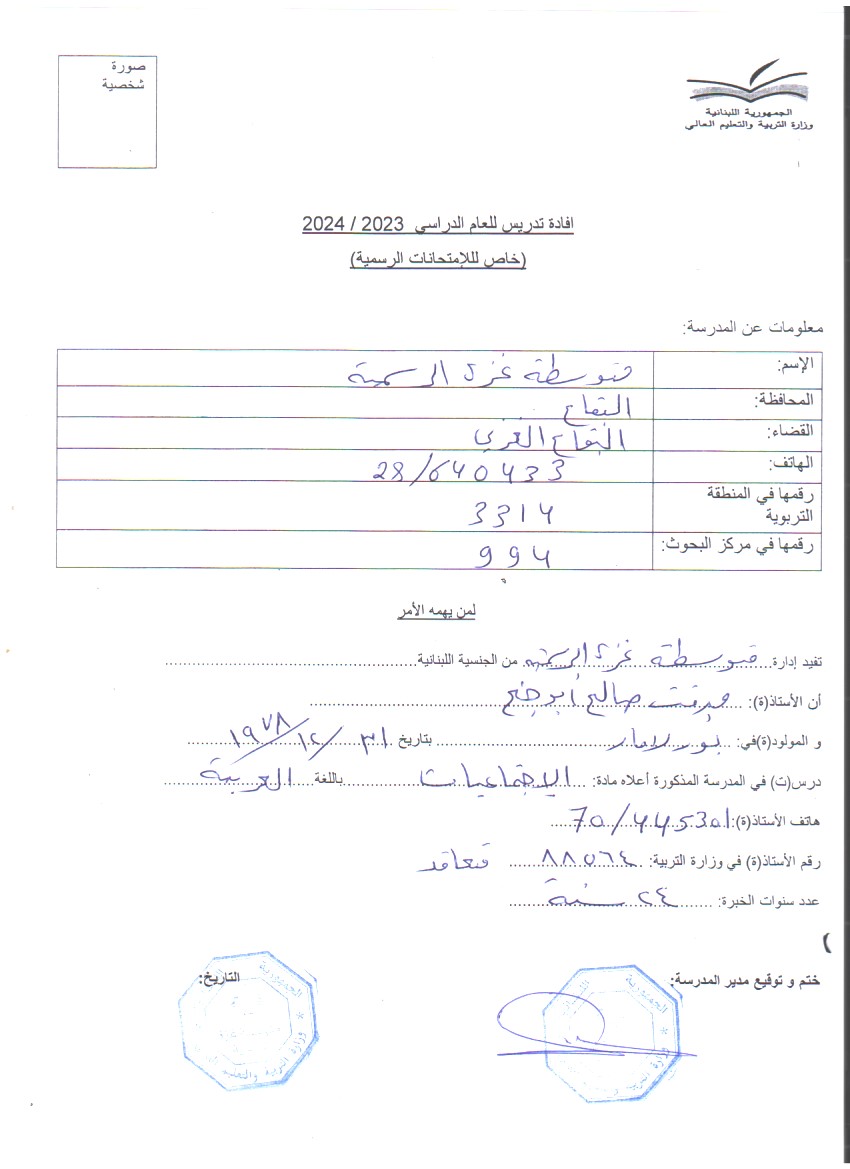 صورة
شخصية
الجمهورية اللبنانية
وزارة التربية والتعليم العالي
افادة تدريس للعام الدراسي 2023 / 2024
(خاص للإمتحانات الرسمية)
معلومات عن المدرسة:
الإسم: متوسطة غزة الرسمية
المحافظة: البقاع
القضاء: البقاع الغربي
الهاتف: 28/640433
رقمها في المنطقة التربوية 3314
رقمها في مركز البحوث: 994
لمن يهمه الأمر
تفيد إدارة متوسطة غزة الرسمية من الجنسية اللبنانية
أن الأستاذ(ة): ميرفت صالح أبو
و المولود(ة)في: بتاريخ ٣١/١٢/١٩٧٨
درس(ت) في المدرسة المذكورة أعلاه مادة: الإجتماعيات باللغة العربية
هاتف الأستاذ(ة): 70/445301
رقم الأستاذ(ة) في وزارة التربية: ٨٨٥٦٤ متعاقد
عدد سنوات الخبرة: ٢٤ سنة
ختم و توقيع مدير المدرسة: التاريخ:
الجمهورية
وزارة التربية والتعليم
الجمهورية
وزارة التربية